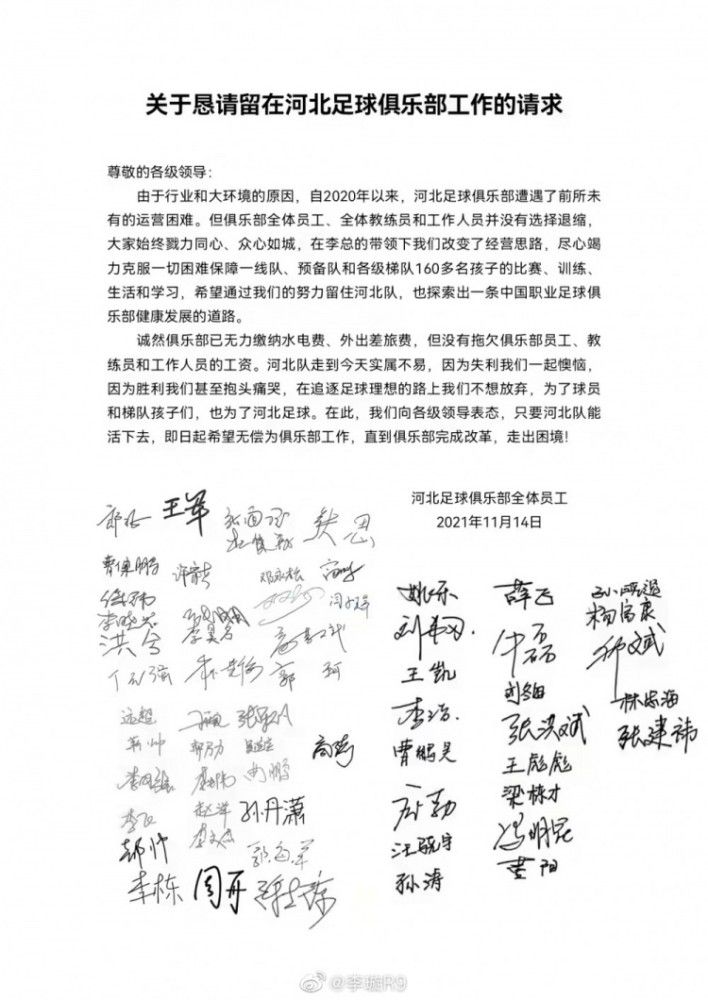 关于恳请留在河北足球俱乐部工作的请求
尊敬的各级领导：
由于行业和大环境的原因，自2020年以来，河北足球俱乐部遭遇了前所未
有的运营困难。但俱乐部全体员工、全体教练员和工作人员并没有选择退缩，
大家始终戮力同心、众心如城，在李总的带领下我们改变了经营思路，尽心竭
力克服一切困难保障一线队、预备队和各级梯队160多名孩子的比赛、训练、
生活和学习，希望通过我们的努力留住河北队，也探索出一条中国职业足球俱
乐部健康发展的道路。
诚然俱乐部已无力缴纳水电费、外出差旅费，但没有拖欠俱乐部员工、教
练员和工作人员的工资。河北队走到今天实属不易，因为失利我们一起懊恼，
因为胜利我们甚至抱头痛哭，在追逐足球理想的路上我们不想放弃，为了球员
和梯队孩子们，也为了河北足球。在此，我们向各级领导表态，只要河北队能
活下去，即日起希望无偿为俱乐部工作，直到俱乐部完成改革，走出困境！
河北足球俱乐部全体员工
2021年11月14日
王军
姚乐
薛飞
杨富康
王凯
李浩
张洪斌
林忠海
张建祎
曹鹏昊
王彪彪
梁栋才
孙丹潇
汪骁宇
冯明昆
孙涛
黄阳
李栋
周丹
@李璇R9